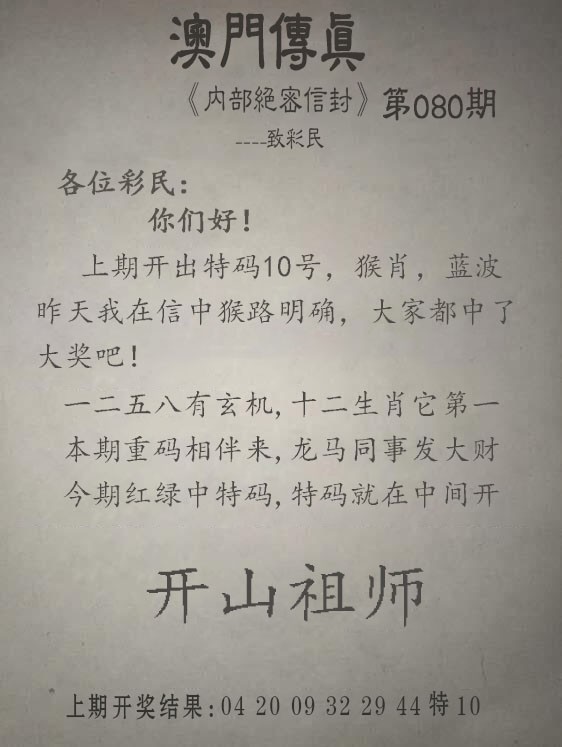 澳門傳真
《内部絕密信封》第080期
----致彩民
各位彩民:
你们好!
上期开出特码10号，猴肖，蓝波
昨天我在信中猴路明确，大家都中了
大奖吧!
一二五八有玄机,十二生肖它第一
本期重码相伴来,龙马同事发大财
今期红绿中特码,特码就在中间开
开山祖师
上期开奖结果:04 20 09 32 29 44特10